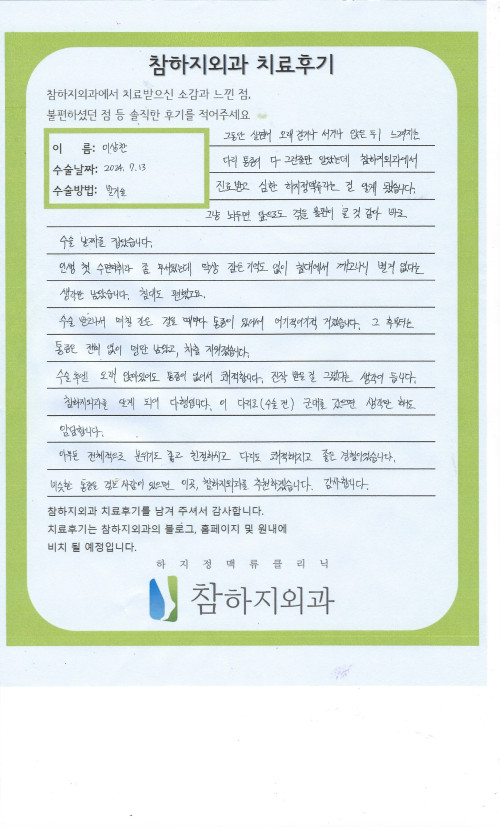 참하지외과 치료후기
참하지외과에서 치료받으신 소감과 느낀 점,
불편하셨던 점 등 솔직한 후기를 적어주세요
이 름: 이상찬
수술날짜: 2024. 9.13
수술방법:
그동안 살면서 오래 걷거나 서거나 앉은 뒤 느껴지는
다리 통증이 다 그런줄만 알았는데 참하지외과에서
진료받고 심한 하지정맥류라는 걸 알게 됐습니다.
그냥 놔두면 앞으로도 겪을 불편이 클 것 같아 바로
수술 날짜를 잡았습니다.
인생 첫 수면마취라 좀 무서웠는데 막상 잠든 기억도 없이 침대에서 깨고나니 별거 없다는
생각만 남았습니다. 침대도 편했고요.
수술 받고나서 며칠 간은 걸을 때마다 통증이 있어서 어기적어기적 거렸습니다. 그 후부터는
통증은 전혀 없이 멍만 남았고, 차츰 지워졌습니다.
수술 후엔 오래 앉아있어도 통증이 없어서 쾌적합니다. 진작 받을 걸 그랬다는 생각이 듭니다.
참하지외과를 알게 되어 다행입니다. 이 다리로(수술 전) 군대를 갔으면 생각만 해도
암담합니다.
아무튼 전체적으로 분위기도 좋고 친절하시고 다리도 쾌적해지고 좋은 경험이었습니다.
비슷한 통증을 겪는 사람이 있으면 이곳, 참하지외과를 추천하겠습니다. 감사합니다.
참하지외과 치료후기를 남겨 주셔서 감사합니다.
치료후기는 참하지외과의 블로그, 홈페이지 및 원내에
비치 될 예정입니다.
하지정맥류클리닉
참하지외과